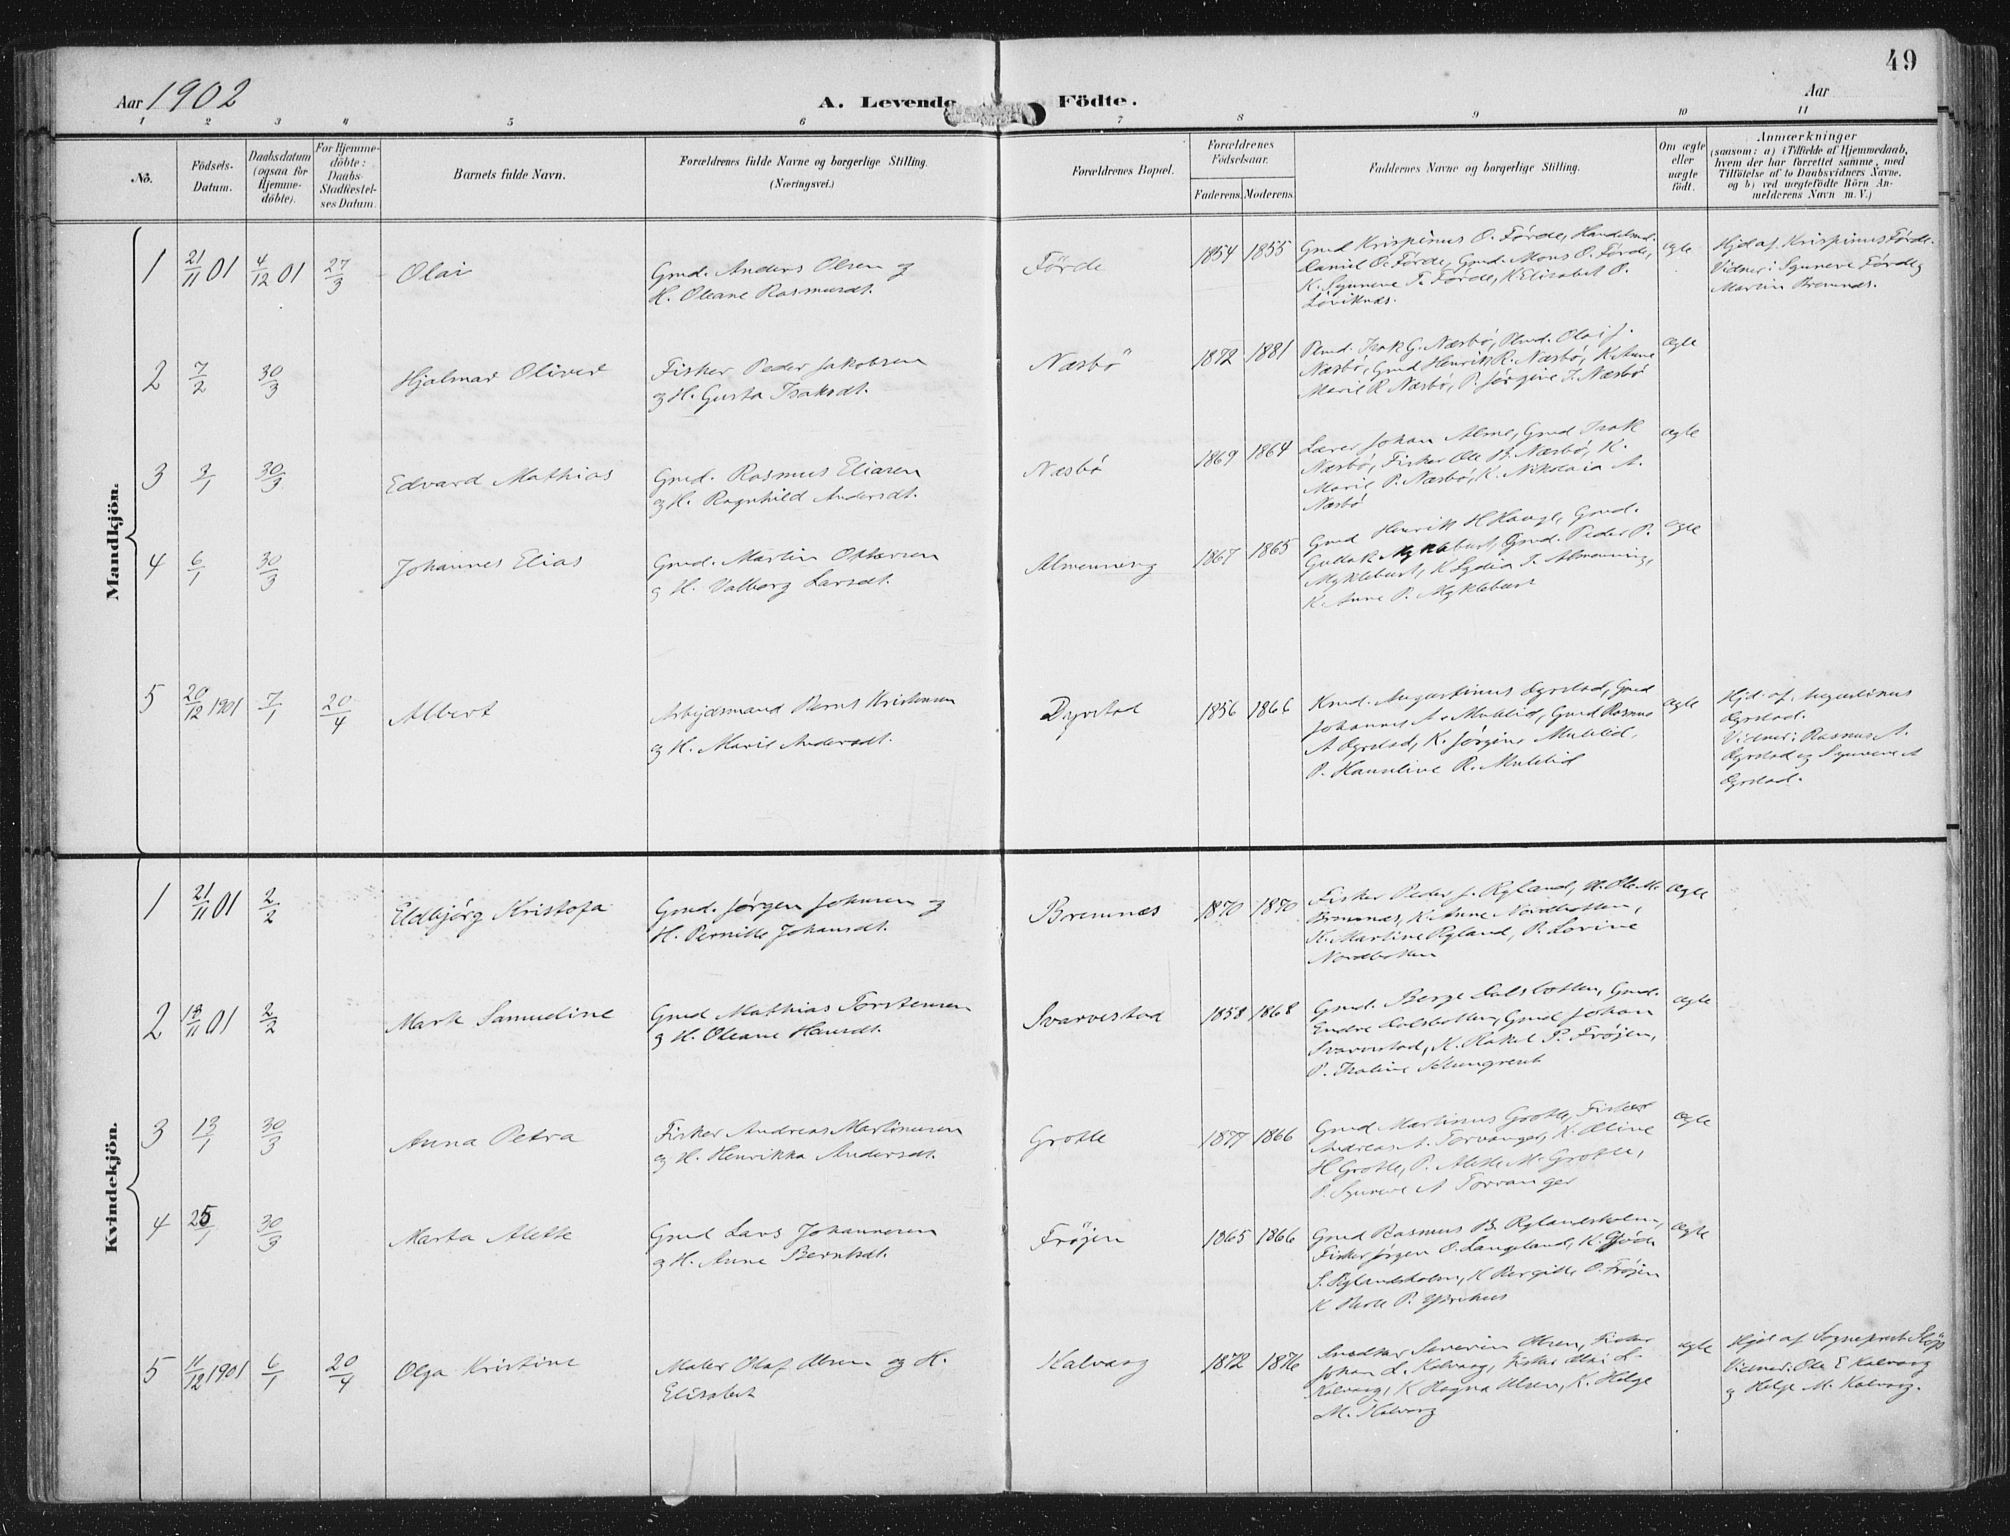 49
Aar 1902
A. Levende Födte.
Aar
1 2 3 4 5 6 7 8 9 10 11
No.
Födsels-
Datum.
Daabsdatum
(ogsaa for
Hjemme-
döbte).
For Hjemme-
döbte:
Daabs-
Stadfæstel-
ses Datum.
Barnets fulde Navn.
Forældrenes fulde Navne og borgerlige Stilling.
(Næringsvei.)
Forældrenes Bopæl.
Forældrenes
Födselsaar.
Faderens. Moderens.
Faddernes Navne og borgerlige Stilling.
Om ægte
eller
uægte
födt.
Anmærkninger
(saasom: a) i Tilfælde af Hjemmedaab,
hvem der har forrettet samme, med
Tilföielse af to Daabsvidners Navne,
og b) ved uægtefödte Börn An-
melderens Navn m. V.)
Mandkjön.
1 21/11 01 4/12 01 27/3 Olai
Gmd. Anders Olsen og
H. Oleane Rasmusdt.
Förde 1854 1855
Gmd Krispinus O. Førde, Handelsmd.
Daniel O. Førde, Gmd. Mons O. Førde,
K. Synneve T. Førde, K Elisabet O.
Løviknæs.
ægte
Hjd af Krispinus Førde.
Vidner: Synneve Førde og
Martin Bremnæs.
2 7/2 30/3 Hjalmar Oliver
Fisker Peder Jakobsen
og H. Gusta Isaksdt.
Næsbö 1872 1881
Plmd. Isak G. Næsbø, Plmd. Olai J.
Næsbø, Gmd Henrik R. Næsbø, K. Anne
Marie R Næsbø, P. Jørgine I. Næsbø
ægte
3 3/1 30/3 Edvard Mathias
Gmd. Rasmus Eliasen
og H. Ragnhild Andersdt.
Næsbø 1869 1864
Lærer Johan Alme, Gmd Isak
Næsbø, Fisker Ole B. Næsbø, K.
Marie P. Næsbø, K. Nikolaia A.
Næsbø
ægte
4 6/1 30/3 Johannes Elias
Gmd. Martin Ottarsen
og H. Valborg Larsdt.
Almenning 1867 1865
Gmd Henrik H Hauge, Gmd.
Gullak Myklebust, Gmd. Peder P.
Myklebust, K Lydia I. Almenning,
K. Anne P. Myklebust
ægte
5 20/12 1901 7/1 20/4 Albert
Arbejdsmand Bernt Kristensen
og H. Marie Andersdt.
Dyrstad 1856 1866
Kmd. Augustinus Dyrstad, Gmd
Johannes A. Mulelid, Gmd Rasmus
A Dyrstad, K. Jørgine Mulelid,
P. Hanseline R. Mulelid
ægte
Hjd. af Augustinus
Dyrstad.
Vidner: Rasmus A.
Dyrstad og Synneve A
Dyrstad.
Kvindekjön.
1 21/11 01 2/2 Eldbjörg Kristofa
Gmd. Jørgen Johnsen og
H. Pernille Johansdt.
Bremnæs 1870 1870
Fisker Peder J. Ryland, U. Ole M.
Bremnæs, K Anne Nordbotten,
K. Martine Ryland, P. Lovine
Nordbotten
ægte
2 13/11 01 2/2 Marte Samueline
Gmd Mathias Torstensen
og H. Oleane Hansdt.
Svarvestad 1858 1868
Gmd. Berge Dalsbotten, Gmd.
Endre Dalsbotten, Gmd Johan
Svarvestad, K. Rakel P. Frøjen,
P. Isaline
ægte
3 13/1 30/3 Anna Petra
Fisker Andreas Martinusen
og H. Henrikka Andersdt.
Grotle 1877 1866
Gmd Martinus Grotle, Fisker
Andreas A. Torvanger, K. Oline
H Grotle, P. Alette M. Grotle,
P. Synneve A Torvanger
ægte
4 25/1 30/3 Marta Alette
Gmd Lars Johannesen
og H. Anne Berntsdt.
Frøjen 1865 1866
Gmd Rasmus B. Rylandsholm,
Fisker Jørgen O. Langeland, K.
S. Rylandsholm, K Bergitte O. Frøjen
K P.
ægte
5 11/12 1901 6/1 20/4 Olga Kristine
Maler Olaf Olsen og H.
Elisabet
Kalvaag 1872 1876
Snedker Severin Olsen, Fisker
Johan L. Kalvaag, Fisker Olai L.
Kalvaag, K Magna Olsen, K. Helge
M. Kalvaag
ægte
Hjd af Sogneprest
Vidner: Ole E Kalvaag
og Helge M. Kalvaag.